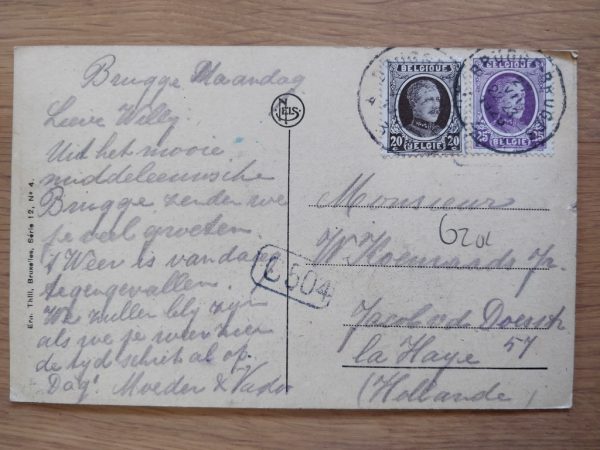 Brugge Maandag
Lieve Willy.
Uit het mooie
middeleeuwsche
Brugge zenden we
je veel groeten
't Weer is vandaag
tegengevallen.
We zullen blij zijn
als we je weer zien
de tijd schiet al op.
Dag! Moeder & Vader
Ern. Thill, Bruxelles, Série 12, No 4.
NELS
BELGIQUE
20 20
BELGIË
BELGIQUE
25 25
BELGIË
BRUGGE
BRUGGE
Monsieur
W. Jr.
Jacob v. d. Doesstr
57
la Haye
(Hollande)
C 504